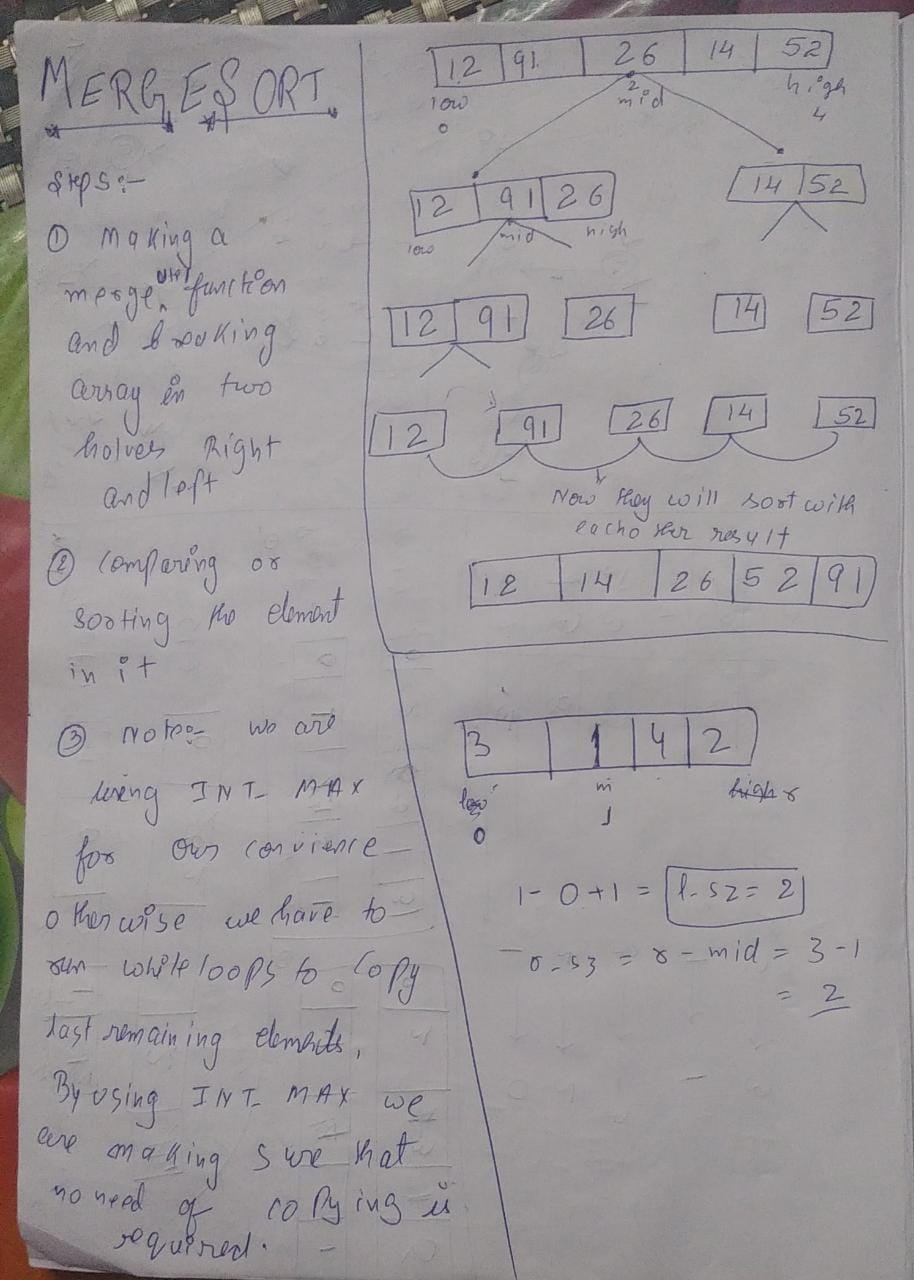 MERGESORT
Steps:-
① Making a
merge function
and breaking
array in two
halves Right
and left
② Comparing or
sorting the element
in it
③ Note:- we are
using INT_MAX
for our convience
otherwise we have to
run while loops to copy
last remaining elements,
By using INT_MAX we
are making sure that
no need of copying is
required.
12 91 26 14 52
low mid high
0 2 4
12 91 26 14 52
low mid high
12 91 26 14 52
12 91 26 14 52
Now they will sort with
eachother result
12 14 26 52 91
3 1 4 2
low m r
0 1
1-0+1 = l-sz = 2
r-sz = r-mid = 3-1
= 2